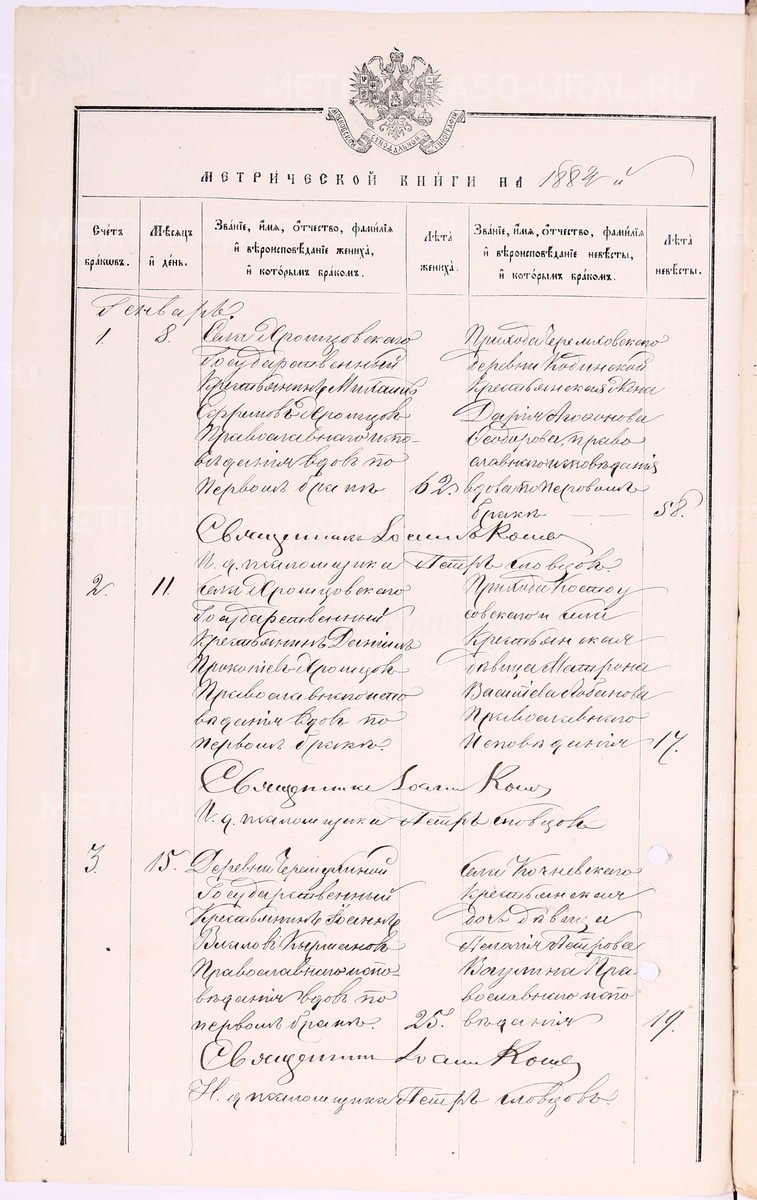 МОСКОВСКОЙ СѴНОДАЛЬНОЙ ТИПОГРАФІИ
МЕТРИЧЕСКОЙ КНИГИ НА 1882 й
Счетъ браковъ.
Мѣсяцъ и день.
Званіе, имя, отчество, фамилія и вѣроисповѣданіе жениха, и которымъ бракомъ.
Лѣта жениха.
Званіе, имя, отчество, фамилія и вѣроисповѣданіе невѣсты, и которымъ бракомъ.
Лѣта невѣсты.
Генварь
1. 8.
Села
Государственный
Крестьянинъ Михаилъ
Ефремовъ
Православнаго испо-
вѣданія вдовъ по
первомъ бракѣ
62.
Прихода
деревни
Крестьянская жена
Дарія
Ѳеодорова, право
славнаго исповѣданія
вдова по первомъ
бракѣ
58.
Священникъ Іоаннъ
И. д. псаломщика Петръ Словцовъ
2. 11.
Села
Государственный
Крестьянинъ Даніилъ
Прокопіевъ
Православнаго испо
вѣданія вдовъ по
первомъ бракѣ.
Прихода
села
Крестьянская
дѣвица Матрона
Василіева Лобанова
Православнаго
Исповѣданія
17.
Священникъ Іоаннъ
И. д. псаломщика Петръ Словцовъ
3. 15.
Деревни
Государственный
Крестьянинъ Іоаннъ
Православнаго испо-
вѣданія вдовъ по
первомъ бракѣ.
25.
села Кочневскаго
крестьянская
дочь дѣвица
Пелагія Петрова
Вагулина Пра
вославнаго испо
вѣданія
19.
Священникъ Іоаннъ
И. д. псаломщика Петръ Словцовъ.